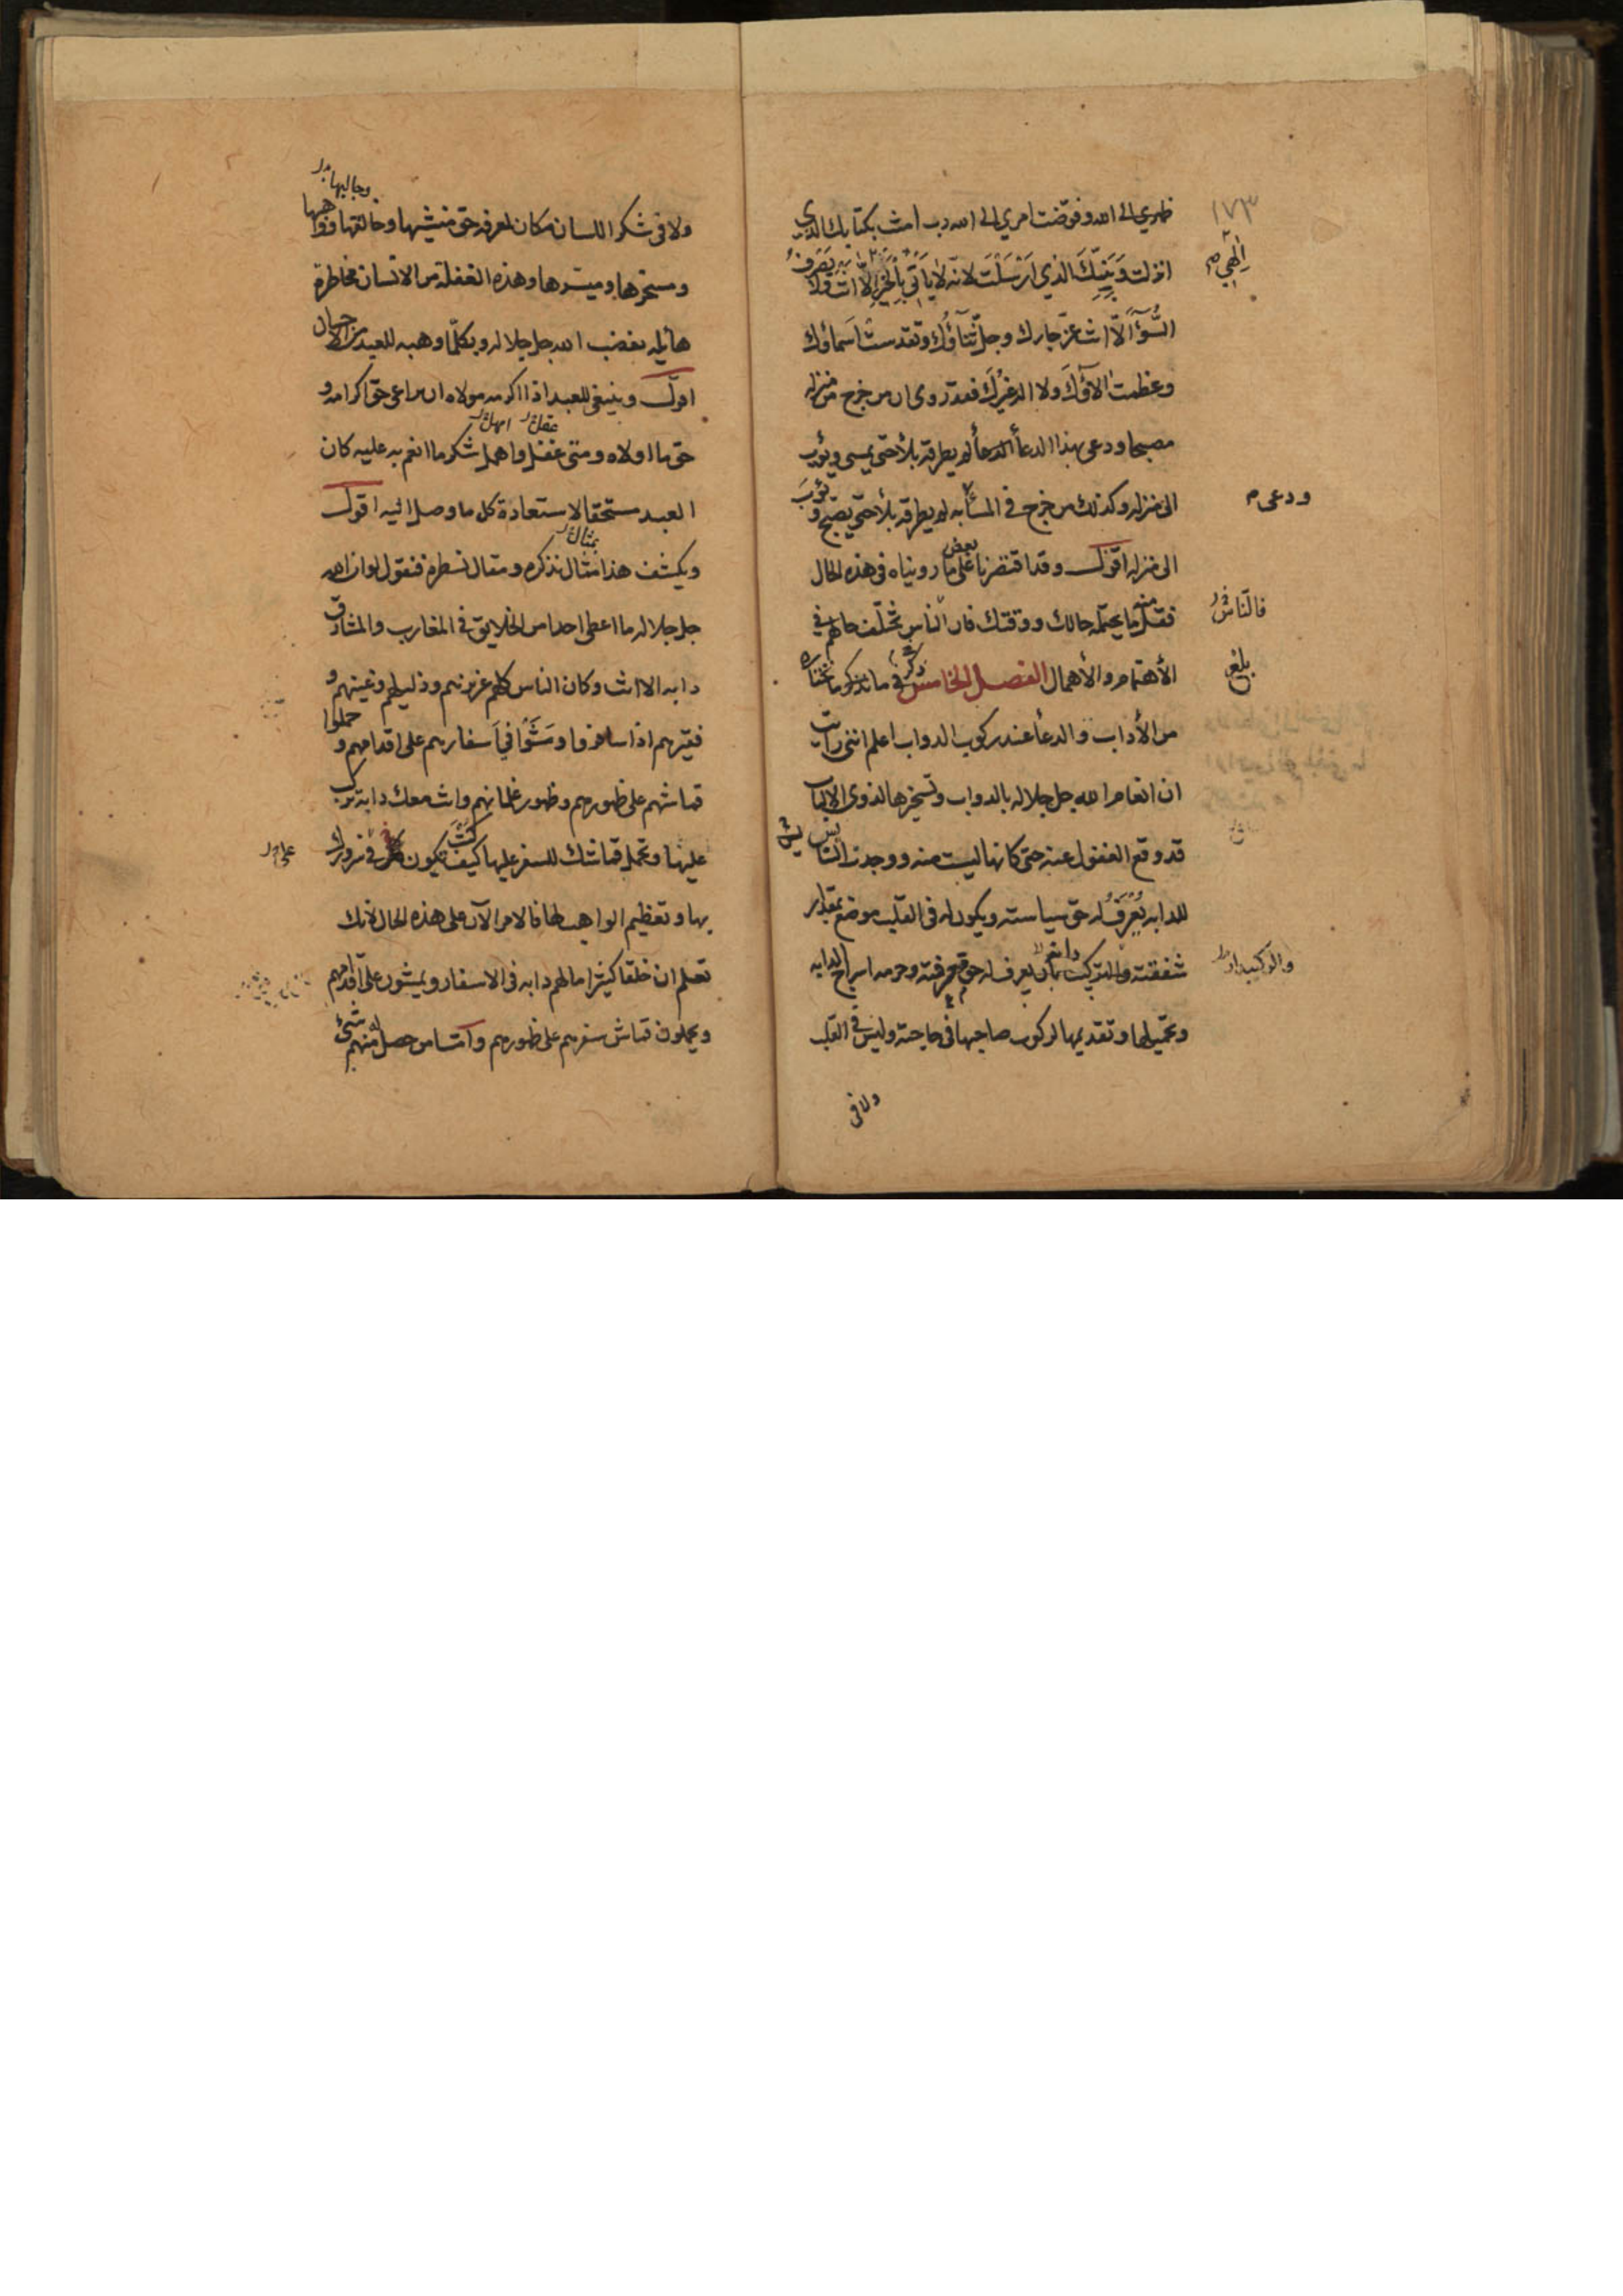 ١٧٣
ظهري الى الله وفوضت امري الى الله رب امنت بكتابك الذي
الهي
انزلت وَبنبِيِّكَ الذي اَرْسَلْتَ لانه لا يَأتي بِالْخَيْرِ اِلّا انت ولا يَصْرِفُ
السُّوۤءَ الّا انت عزّ جارك وجلّ ثَنَآؤُكَ وتقدست اسماؤك
وعظمت الآؤُكَ ولا اله غَيْرُكَ فقد روى ان من خرج من منزله
مصبحا ودعى بهذا الدعاء لم يطرقه بلاء حتى يمسى ويؤب
الى منزله وكذلك من خرج في المساء به لم يطرقه بلاء حتى يصبح ويؤب
ودعى
الى منزله اقول وقد اقتصرنا على بعض ما رويناه فى هذه الحال
فقل منه ما يحتمله حالك ووقتك فان الناس تختلف حالهم في
فالنّاس
الأهتمام والأهمال الفصل الخامس في ما نذكره
بلغ
من الأداب والدعاء عند ركوب الدواب اعلم اننى رايت
ان انعام الله جل جلاله بالدواب وتسخيرها لذوى الالباب
قد وقع الغفول عنه حتى كانها ليست منه ووجدت السايس
للدابه يُعْرَفُ له حق سياسته ويكون له فى القلب موضع بمقدار
شفقته يعرف له حق معرفته وحرمه اسراج الدابه
وتحميلها وتقديمها لركوب صاحبها فى حاجته وليس في القلب
ولا فى
وجالبها
ولا فى شكر اللسان مكان لمعرفه حق منشيها وخالقها وواهبها
ومسخرها وميسرها وهذه الغفلة من الانسان مخاطرة
هائله بغضب الله جل جلاله وبكلما وهبه للعبد من الاحسان
اقول وينبغى للعبد اذا اكرمه مولاه ان يراعى حق اكرامه و
حق ما اولاه ومتى غفل واهمل شكر ما انعم به عليه كان
العبد مستحقا لاستعادة كل ما وصل اليه اقول
بمثال
ويكشف هذا مثال نذكره ومقال نسطره فنقول لو ان الله
جل جلاله ما اعطى احدا من الخلايق في المغارب والمشارق
دابه الا انت وكان الناس كلهم عزيزهم وذليلهم وغنيهم و
فقيرهم اذا سافروا ومَشَوْا في اَسفارهم على اقدامهم وحملوا
قماشهم على ظهورهم وظهور غلمانهم وانت معك دابة تركب
عليها وتحمل قماشك للسفر عليها كيف كنتَ تكون في سرورك
بها وتعظيم الواهب لها فالامر الآن على هذه الحال لانك
تعلم ان خلقا كثيرا ما لهم دابه فى الاسفار ويمشون على اقدامهم
ويحملون قماش سفرهم على ظهورهم وامّا من حصل منهم شئ